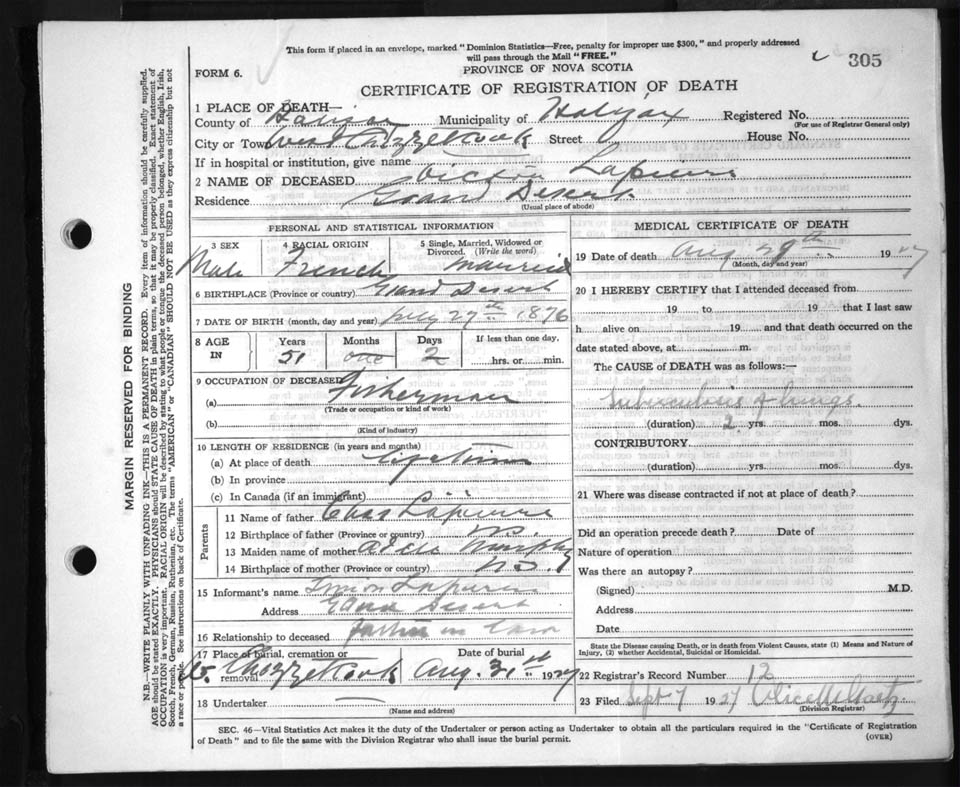 This form if placed in an envelope, marked "Dominion Statistics—Free, penalty for improper use $300," and properly addressed
will pass through the Mail "FREE."
305
FORM 6.
PROVINCE OF NOVA SCOTIA
CERTIFICATE OF REGISTRATION OF DEATH
1 PLACE OF DEATH—
County of Halifax Municipality of Halifax Registered No.
(For use of Registrar General only)
City or Town West Chezzetcook Street House No.
If in hospital or institution, give name
2 NAME OF DECEASED Victor Lapierre
Residence Grand Desert
(Usual place of abode)
PERSONAL AND STATISTICAL INFORMATION
3 SEX 4 RACIAL ORIGIN 5 Single, Married, Widowed or Divorced. (Write the word)
Male French married
6 BIRTHPLACE (Province or country) Grand Desert
7 DATE OF BIRTH (month, day and year) July 27th 1876
8 AGE IN Years Months Days If less than one day.
51 one 2 hrs. or min.
9 OCCUPATION OF DECEASED
(a) Fisherman
(Trade or occupation or kind of work)
(b)
(Kind of industry)
10 LENGTH OF RESIDENCE (in years and months)
(a) At place of death lifetime
(b) In province
(c) In Canada (if an immigrant)
Parents
11 Name of father Chas Lapierre
12 Birthplace of father (Province or country) N.S.
13 Maiden name of mother Murphy
14 Birthplace of mother (Province or country) N.S.
15 Informant's name Lapierre
Address Grand Desert
16 Relationship to deceased in law
17 Place of burial, cremation or removal Date of burial
W. Chezzetcook Aug. 31st 1927
18 Undertaker
(Name and address)
MEDICAL CERTIFICATE OF DEATH
19 Date of death Aug 29th 1927
(Month, day and year)
20 I HEREBY CERTIFY that I attended deceased from
19 to 19 that I last saw
h alive on 19 and that death occurred on the
date stated above, at m.
The CAUSE of DEATH was as follows:—
Tuberculosis of lungs
(duration) 2 yrs. mos. dys.
CONTRIBUTORY
(duration) yrs. mos. dys.
21 Where was disease contracted if not at place of death?
Did an operation precede death? Date of
Nature of operation
Was there an autopsy?
(Signed) M.D.
Address
Date
State the Disease causing Death, or in death from Violent Causes, state (1) Means and Nature of
Injury, (2) whether Accidental, Suicidal or Homicidal.
22 Registrar's Record Number 12
23 Filed Sept 7 1927
(Division Registrar)
SEC. 46—Vital Statistics Act makes it the duty of the Undertaker or person acting as Undertaker to obtain all the particulars required in the "Certificate of Registration
of Death" and to file the same with the Division Registrar who shall issue the burial permit.
(OVER)
MARGIN RESERVED FOR BINDING
N.B.—WRITE PLAINLY WITH UNFADING INK—THIS IS A PERMANENT RECORD. Every item of information should be carefully supplied.
AGE should be stated EXACTLY. PHYSICIANS should STATE CAUSE OF DEATH in plain terms, so that it may be properly classified. Exact statement of
OCCUPATION is very important. RACIAL ORIGIN will be described by stating to what people or tongue the deceased person belonged, whether English, Irish,
Scotch, French, German, Russian, Ruthenian, etc. The terms "AMERICAN" or "CANADIAN" SHOULD NOT BE USED as they express citizenship but not
a race or people. See instructions on back of Certificate.